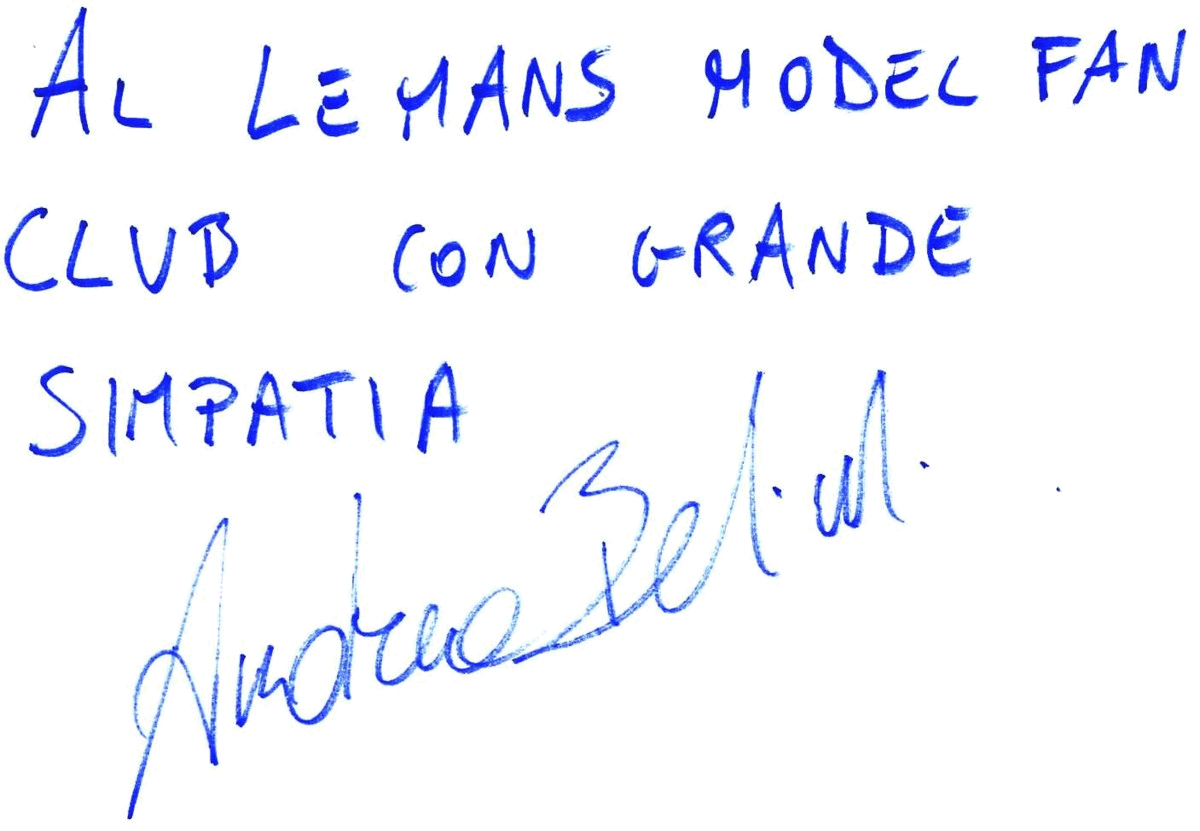 AL LE MANS MODEL FAN
CLUB CON GRANDE
SIMPATIA
Andrea